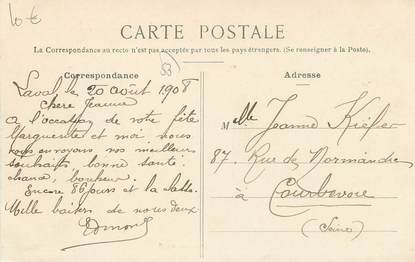 10 €
CARTE POSTALE
La Correspondance au recto n'est pas acceptée par tous les pays étrangers. (Se renseigner à la Poste).
Correspondance
53
Adresse
Laval, le 20 août 1908
Chère Jeanne
A l'occasion de votre fête
Marguerite et moi nous
vous envoyons nos meilleurs
souhaits, bonne santé
chance, bonheur.
Encore 86 jours et la
Mille baisers de nous deux
Edmond
Melle Jeanne Kiéfer
87, Rue de Normandie
à Courbevoie
(Seine)